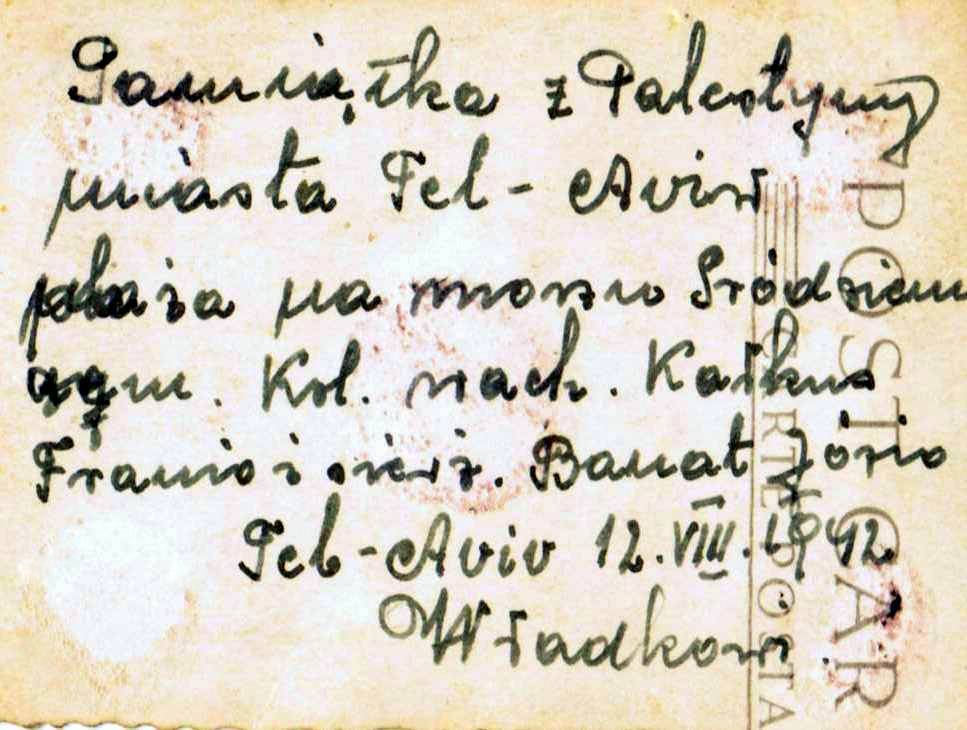 Pamiątka z Palestyny
miasta Tel-Aviw
plaża na morzu Śródziem
nym. Kol. nach. Kaikus
Franio i sierż. Banat Józio
Tel-Aviv 12.VIII.1942
Władkowi
POST CAR
CARTE POSTA